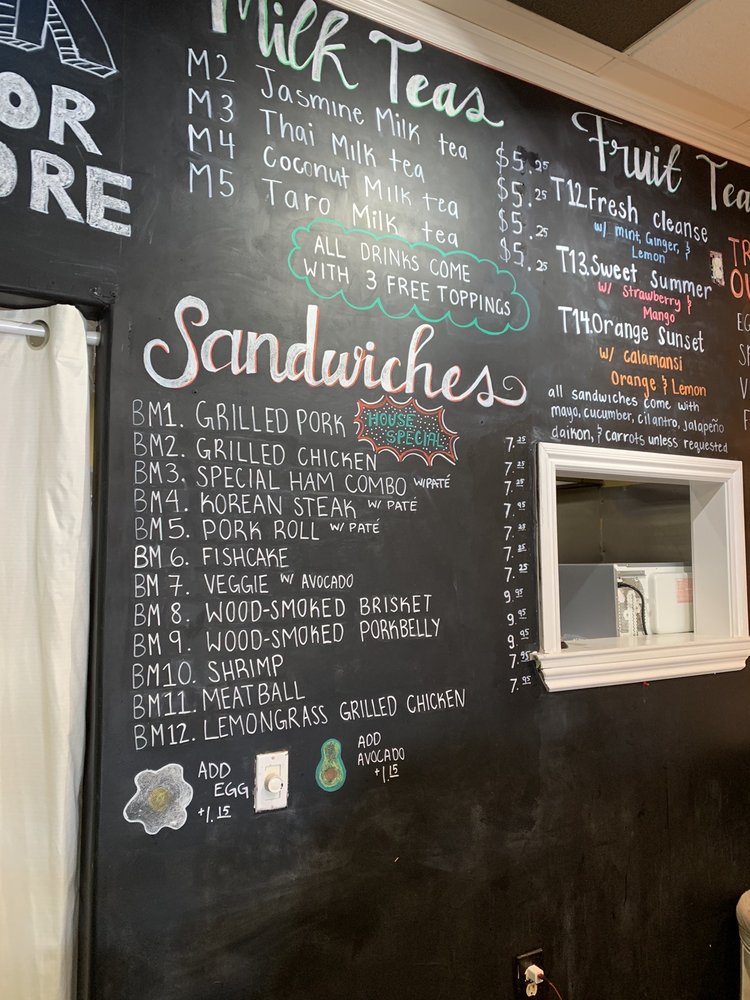 OR
ORE
Milk Teas
M2 Jasmine Milk tea $5.25
M3 Thai Milk tea $5.25
M4 Coconut Milk tea $5.25
M5 Taro Milk tea $5.25
ALL DRINKS COME
WITH 3 FREE TOPPINGS
Fruit Tea
T12. Fresh cleanse
w/ mint, Ginger, &
Lemon
T13. Sweet Summer
w/ Strawberry &
Mango
T14. Orange Sunset
w/ calamansi
Orange & Lemon
all sandwiches come with
mayo, cucumber, cilantro, jalapeño
daikon, & carrots unless requested
Sandwiches
HOUSE
SPECIAL
BM1. GRILLED PORK 7.25
BM2. GRILLED CHICKEN 7.25
BM3. SPECIAL HAM COMBO W/PATÉ 7.25
BM4. KOREAN STEAK W/ PATÉ 7.95
BM5. PORK ROLL W/ PATÉ 7.25
BM6. FISHCAKE 7.25
BM7. VEGGIE W/ AVOCADO 7.25
BM8. WOOD-SMOKED BRISKET 9.95
BM9. WOOD-SMOKED PORKBELLY 9.95
BM10. SHRIMP 9.95
BM11. MEATBALL 7.95
BM12. LEMONGRASS GRILLED CHICKEN 7.95
ADD
EGG
+1.15
ADD
AVOCADO
+1.15